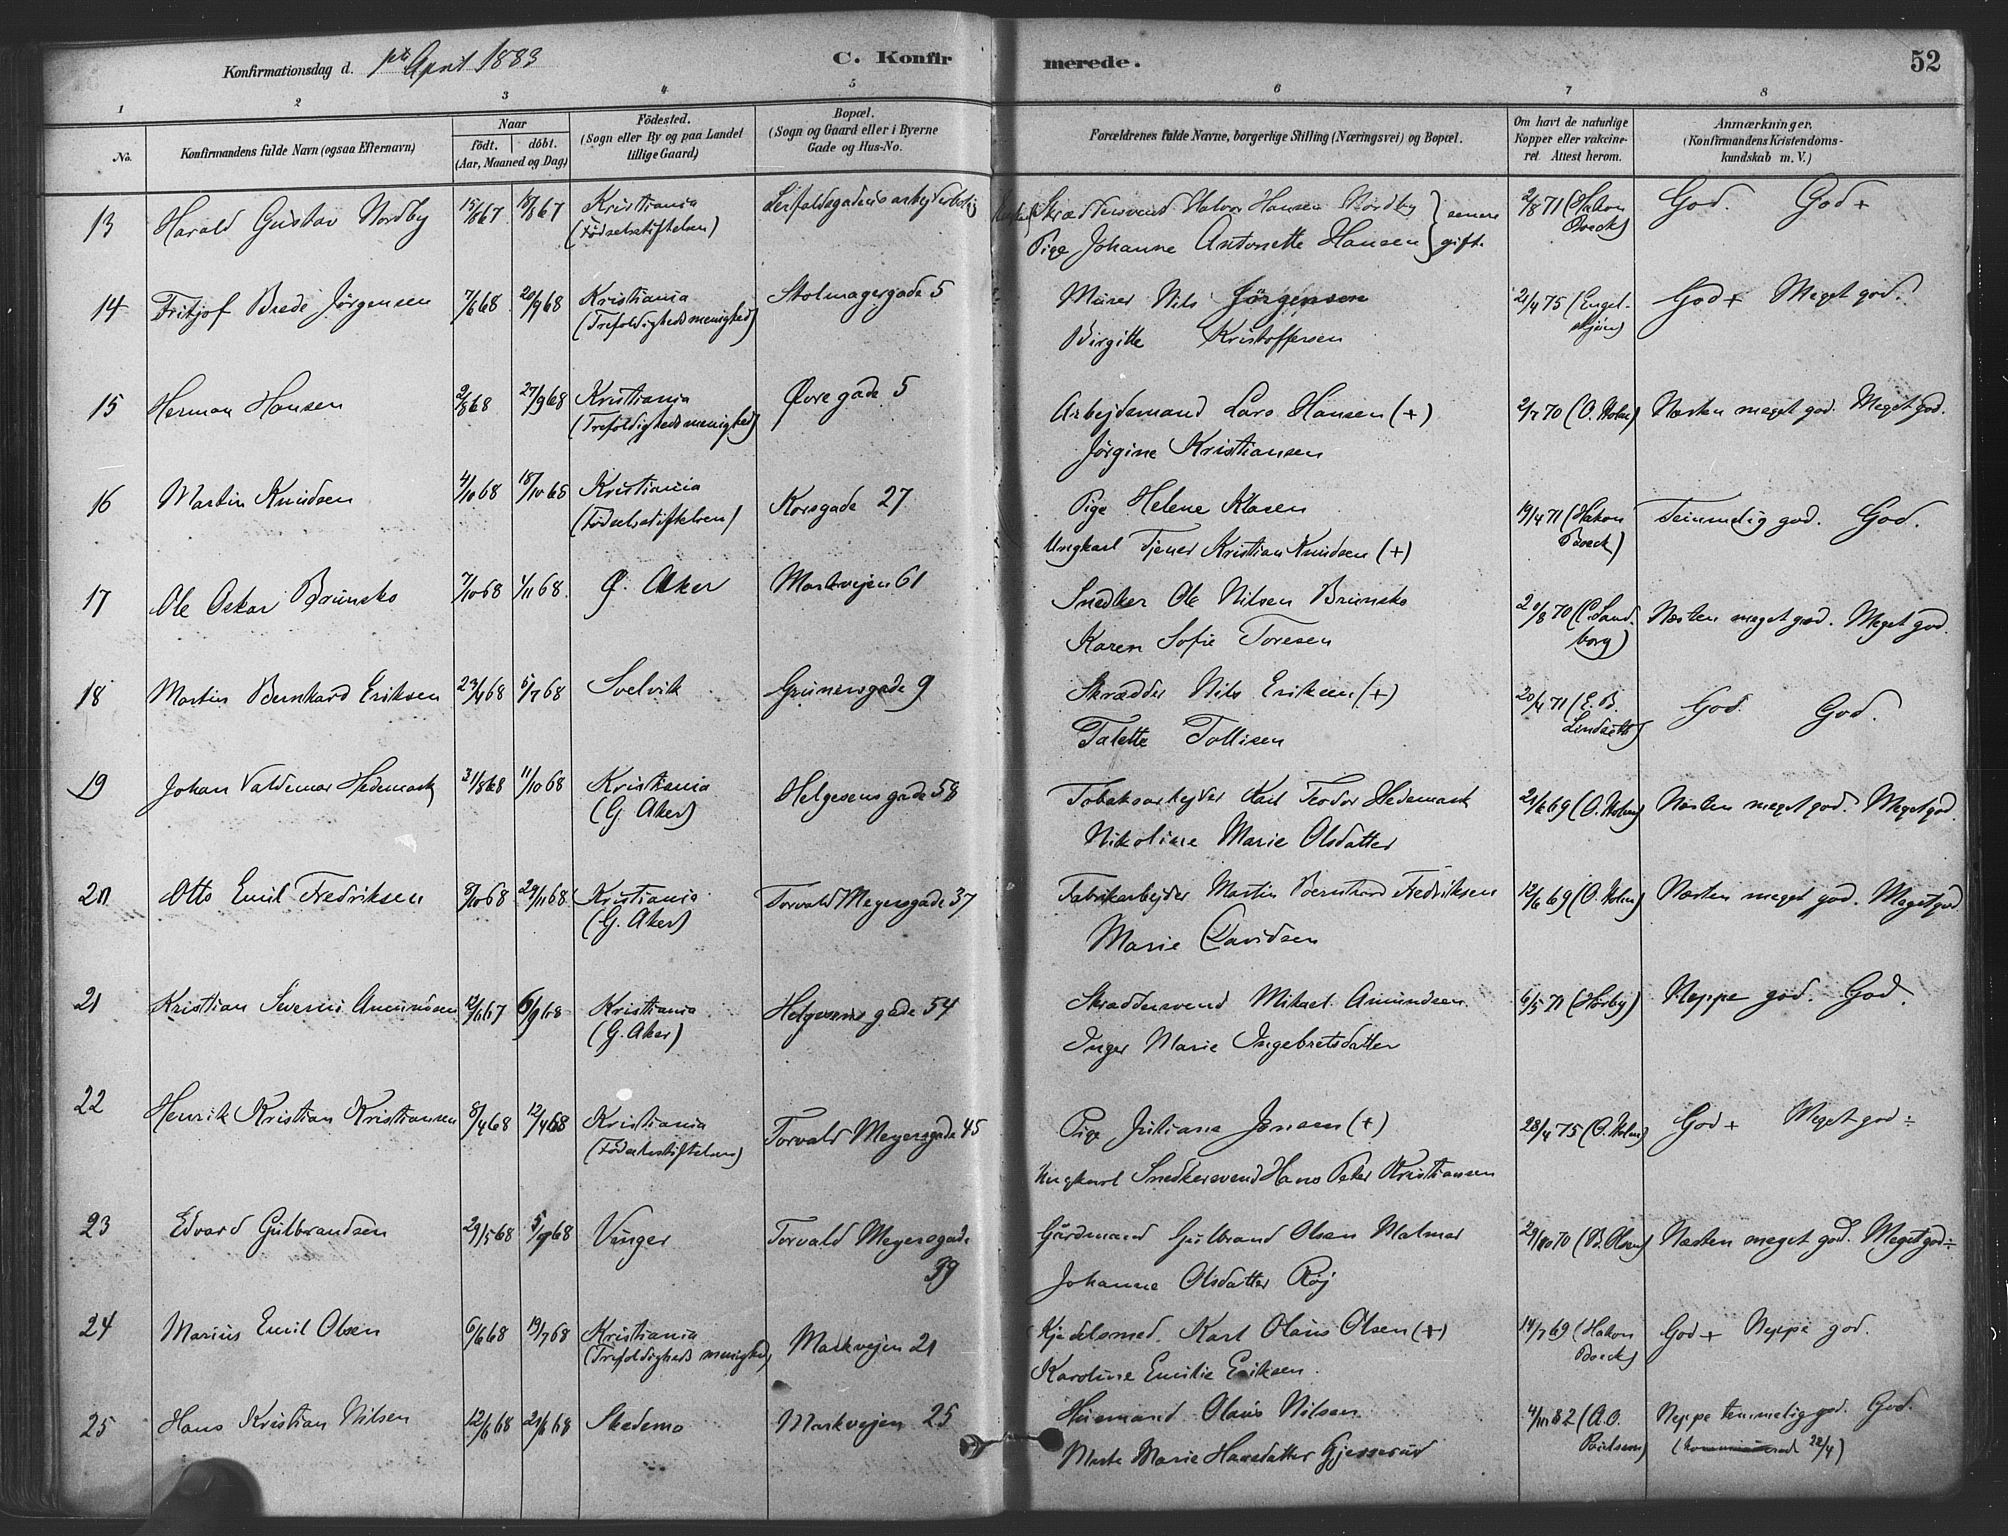 Konfirmationsdag d. 1ste April 1883 C. Konfirmerede. 52
1 2 3 4 5 6 7 8
No. Konfirmandens fulde Navn (ogsaa Efternavn) Naar født. døbt. (Aar, Maaned og Dag) Födested. (Sogn eller By og paa Landet tillige Gaard) Bopæl. (Sogn og Gaard eller i Byerne Gade og Hus-No. Forældrenes fulde Navne, borgerlige Stilling (Næringsvei) og Bopæl. Om havt de naturlige Kopper eller vakcineret. Attest herom. Anmærkninger. (Konfirmandens Kristendomskundskab m. V.)
13 Harald Gustav Nordby 15/8 67 18/8 67 Kristiania Skræddersvend Halvor Hansen Nordby } senere 2/8 71 (Hakon God. God +
(Fødselsstiftelsen) Pige Johanne Antonette Hansen } gift. Boeck)
14 Fritjof Brede Jørgensen 7/6 68 20/9 68 Kristiania Stolmagergade 5 Murer Nils Jørgensen 21/4 75 (Engel- God + Meget god.
(Trefoldighedsmenighed) Birgitte Kristoffersen
15 Herman Hansen 2/8 68 27/9 68 Kristiania Øvre gade 5 Arbejdsmand Lars Hansen (+) 2/7 70 (O. Holm) Næsten meget god. Meget god.
(Trefoldighedsmenighed) Jørgine Kristiansen
16 Martin Knudsen 4/10 68 18/10 68 Kristiania Korsgade 27 Pige Helene Klasen 19/4 71 (Hakon Temmelig god. God.
(Fødselsstiftelsen) Ungkarl Tjener Kristian Knudsen (+) Boeck)
17 Ole Oskar Brunsko 7/10 68 1/11 68. Ø. Aker Markvejen 61 Snedker Ole Nilsen Brunsko 20/8 70 (C. Sand- Næsten meget god. Meget god.
Karen Sofie Toresen borg)
18 Martin Bernhard Eriksen 23/4 68 5/7 68 Svelvik Grünersgade 9 Skrædder Nils Eriksen (+) 20/4 71 (E. B. God. God.
Talette Tollisen Lindseth)
19 Johan Valdemar Hedemark 31/8 68 11/10 68 Kristiania Helgesens gade 58 Tobaksarbejder Karl Teodor Hedemark 21/6 69 (O. Holm) Næsten meget god. Meget god.
(G. Aker) Nikoline Marie Olsdatter
20 Otto Emil Fredriksen 8/10 68 29/11 68 Kristiania Torvald Meyersgade 37 Fabrikarbejder Martin Bernhard Fredriksen 12/6 69 (O. Holm) Næsten meget god. Meget god
(G. Aker) Marie Davidsen
21 Kristian Severin Amundsen 12/6 67 6/9 68 Kristiania Helgesens gade 54 Skræddersvend Mikael Amundsen. 6/5 71 (Hørby) Neppe god. God.
(G. Aker) Inger Marie Ingebretsdatter
22 Henrik Kristian Kristiansen 8/4 68 12/4 68 Kristiania Torvald Meyersgade 45 Pige Juliane Jensen (+) 28/4 75 (O. Holm) God + Meget god ÷
(Fødselsstiftelsen) Ungkarl Snedkersvend Hans Peter Kristiansen
23 Edvard Gulbrandsen 29/5 68 5/9 68 Vinger Torvald Meyersgade Gårdmand Gulbrand Olsen Malmer 29/10 70 (B. Olsen) Næsten meget god. Meget god ÷
39 Johanne Olsdatter Røj
24 Marius Emil Olsen 6/6 68 19/7 68 Kristiania Markvejen 21 Kjedelsmed. Karl Olaus Olsen (+) 14/7 69 (Hakon God + Neppe god.
(Trefoldigheds menighed) Karoline Emilie Eriksen. Boeck)
25 Hans Kristian Nilsen 12/6 68 21/6 68 Skedsmo Markvejen 25 Husmand Olaus Nilsen 4/11 82 (A.O. Neppe temmelig god. God.
Marte Marie Hansdatter Gjesserud Poulsen) 22/4)